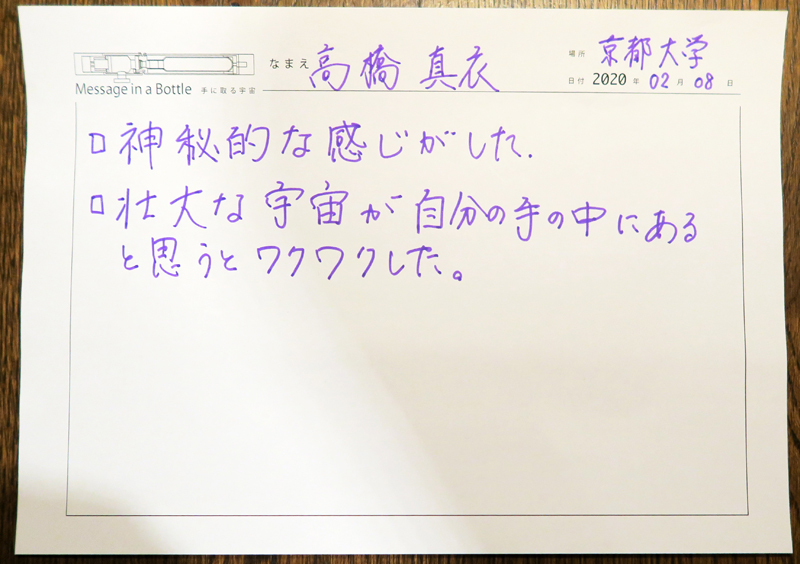 なまえ 高橋 真衣
場所 京都大学
Message in a Bottle 手に取る宇宙
日付 2020 年 02 月 08 日
□神秘的な感じがした.
□壮大な宇宙が自分の手の中にある
と思うとワクワクした。